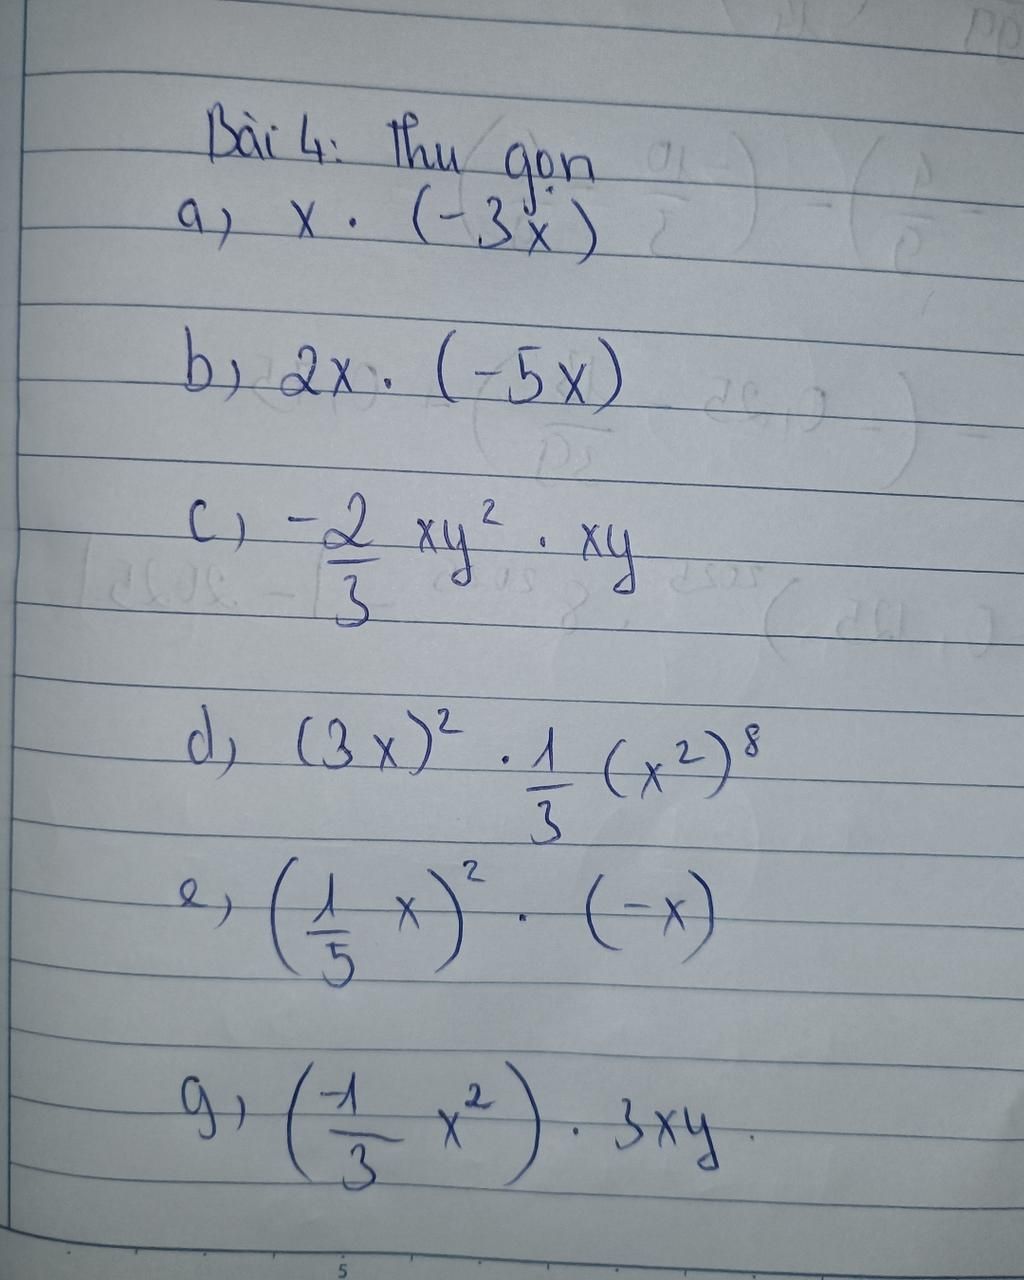 Bài 4: Thu gọn
a, x . (-3x)
b, 2x . (-5x)
c, -2/3 xy² . xy
d, (3x)² . 1/3 (x²)⁸
e, (1/5 x)² . (-x)
g, (-1/3 x²) . 3xy.
5